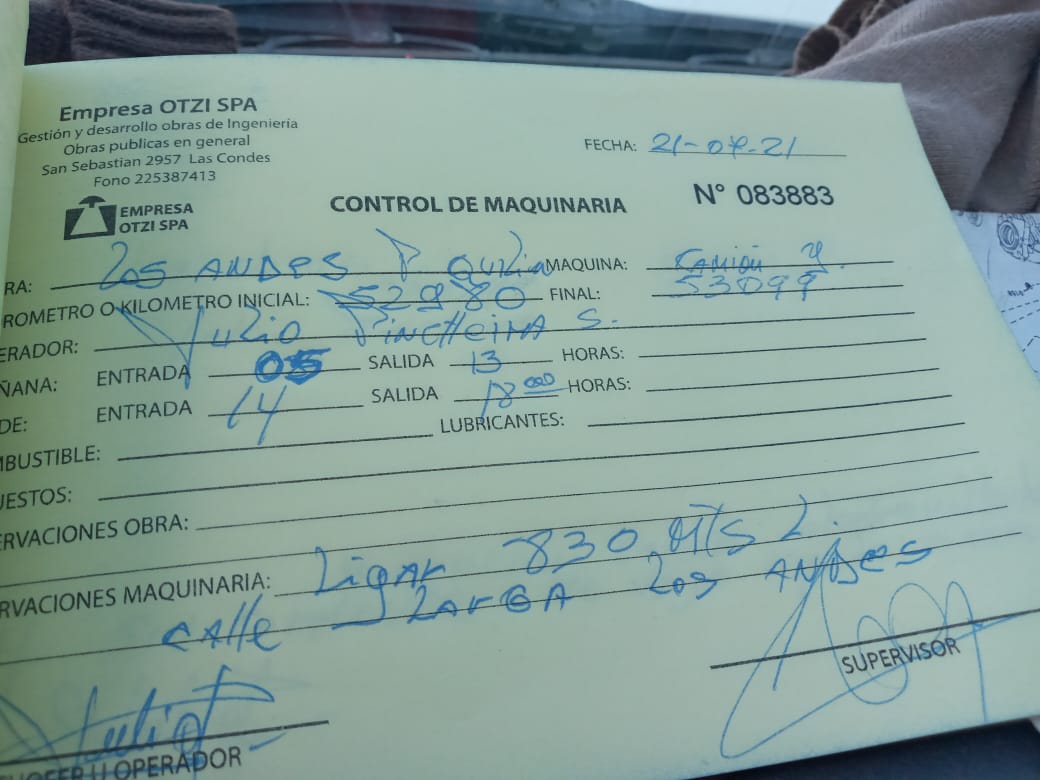 Empresa OTZI SPA
Gestión y desarrollo obras de Ingeniería
Obras publicas en general
San Sebastian 2957 Las Condes
Fono 225387413
FECHA: 21-04-21
EMPRESA
OTZI SPA
CONTROL DE MAQUINARIA
N° 083883
RA: Los ANDES P. MAQUINA: CAMIÓN
ROMETRO O KILOMETRO INICIAL: 52980 FINAL: 53099
ERADOR: Julio PiNcHeiRA S.
ÑANA: ENTRADA 05 SALIDA 13 HORAS:
DE: ENTRADA 14 SALIDA 18 000 HORAS:
MBUSTIBLE: LUBRICANTES:
UESTOS:
ERVACIONES OBRA:
RVACIONES MAQUINARIA: LigAr 830 MTS L.
CAlle LArGA Los ANDes
SUPERVISOR
HOFER U OPERADOR